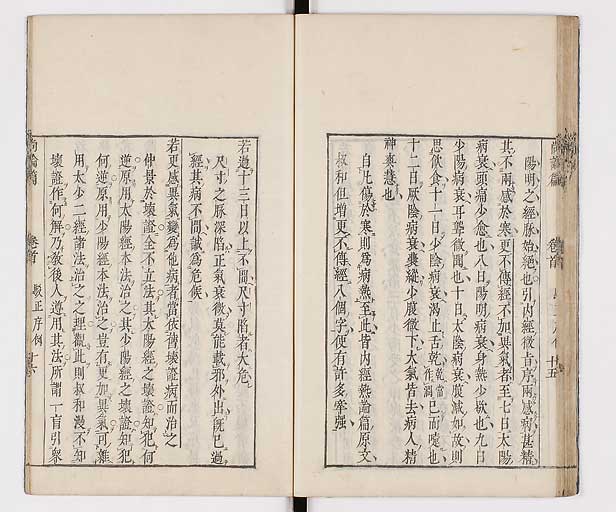 陽明之經脉始絕也引內經微旨序兩感病甚精
其不兩感於寒更不傳經不加異氣者至七日太陽
病衰頭痛少愈也八日陽明病衰身熱少歇也九日
少陽病衰耳聾微聞也十日太陰病衰腹減如故則
思飲食十一日少陰病衰渴止舌乾乾當作滿已而嚏也
十二日厥陰病衰囊縱少腹微下大氣皆去病人精
神爽慧也
自凡傷於寒則爲病熱至此皆內經熱論篇原文
叔和但增更不傳經八個字便有許多牽強
尚論篇
卷首
十五
若過十三日以上不間尺寸陷者大危
尺寸之脉深陷正氣衰微莫能載邪外出旣已過
經其病不間誠爲危候
若更感異氣變爲他病者當依舊壞證病而治之
仲景於壞證全不立法其太陽經之壞證知犯何
逆原用太陽經本法治之其少陽經之壞證知犯
何逆原用少陽經本法治之豈有更加異氣可雜
用太少二經諸法治之之理觀此則叔和漫不知
壞證作何解乃敎後人遵用其法所謂一盲引衆
尚論篇
卷首
駁正序例
十六